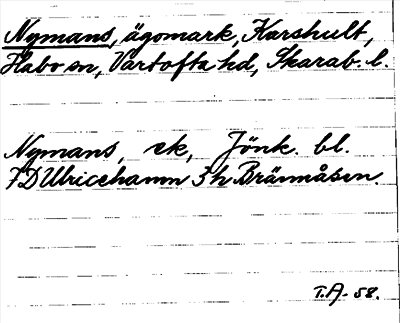 Nymans, ägomark, Karshult,
Habo sn, Vartofta hd, Skarab. l.
Nymans, ek, Jönk. bl.
7D Ulricehamn 5 h Brännåsen.
T.A. 58.